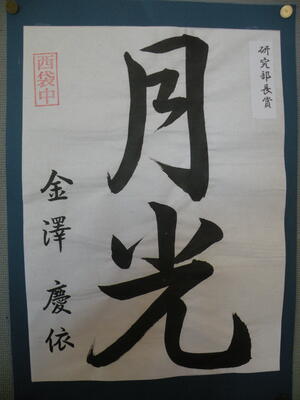 研究部長賞
月光
西袋中
金澤慶依